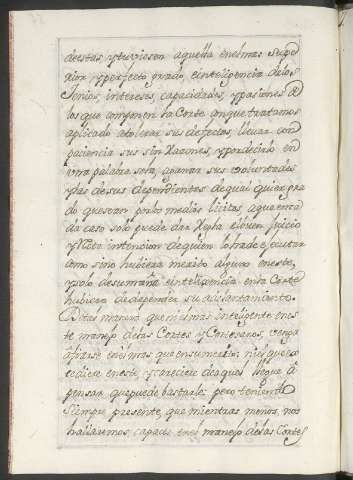 de estas, y tuviesen aquella en el mas supe
rior, y perfecto grado, e inteligencia de los
Genios, intereses, capacidades, y pasiones de
los que componen la Corte con que tratamos
aplicado a tolerar sus defectos, llevar con
paciencia sus sin razones, y por decirlo en
una palabra sola, a ganar sus voluntades
y las de sus dependientes de qual quier gra
do que sean por los medios licitos, aqueen ca
da caso solo puede dar Regla el buen juicio
y Recta intencion de quien lo ha de ejecutar
como sino hubiera merito alguno en este,
y solo de su maña e inteligencia en la Corte
hubiera de depender su adelantamiento.
De tal manera que ni el mas inteligente en es
te manejo de las Cortes y Cortesanos, venga
a fiarse en el mas que en su merito: ni el que ex
cediere en este, y careciere de aquel llegue á
pensar que puede bastarle: pero teniendo
siempre presente, que mientras menos, nos
hallaremos, capaces en el manejo de las Cortes